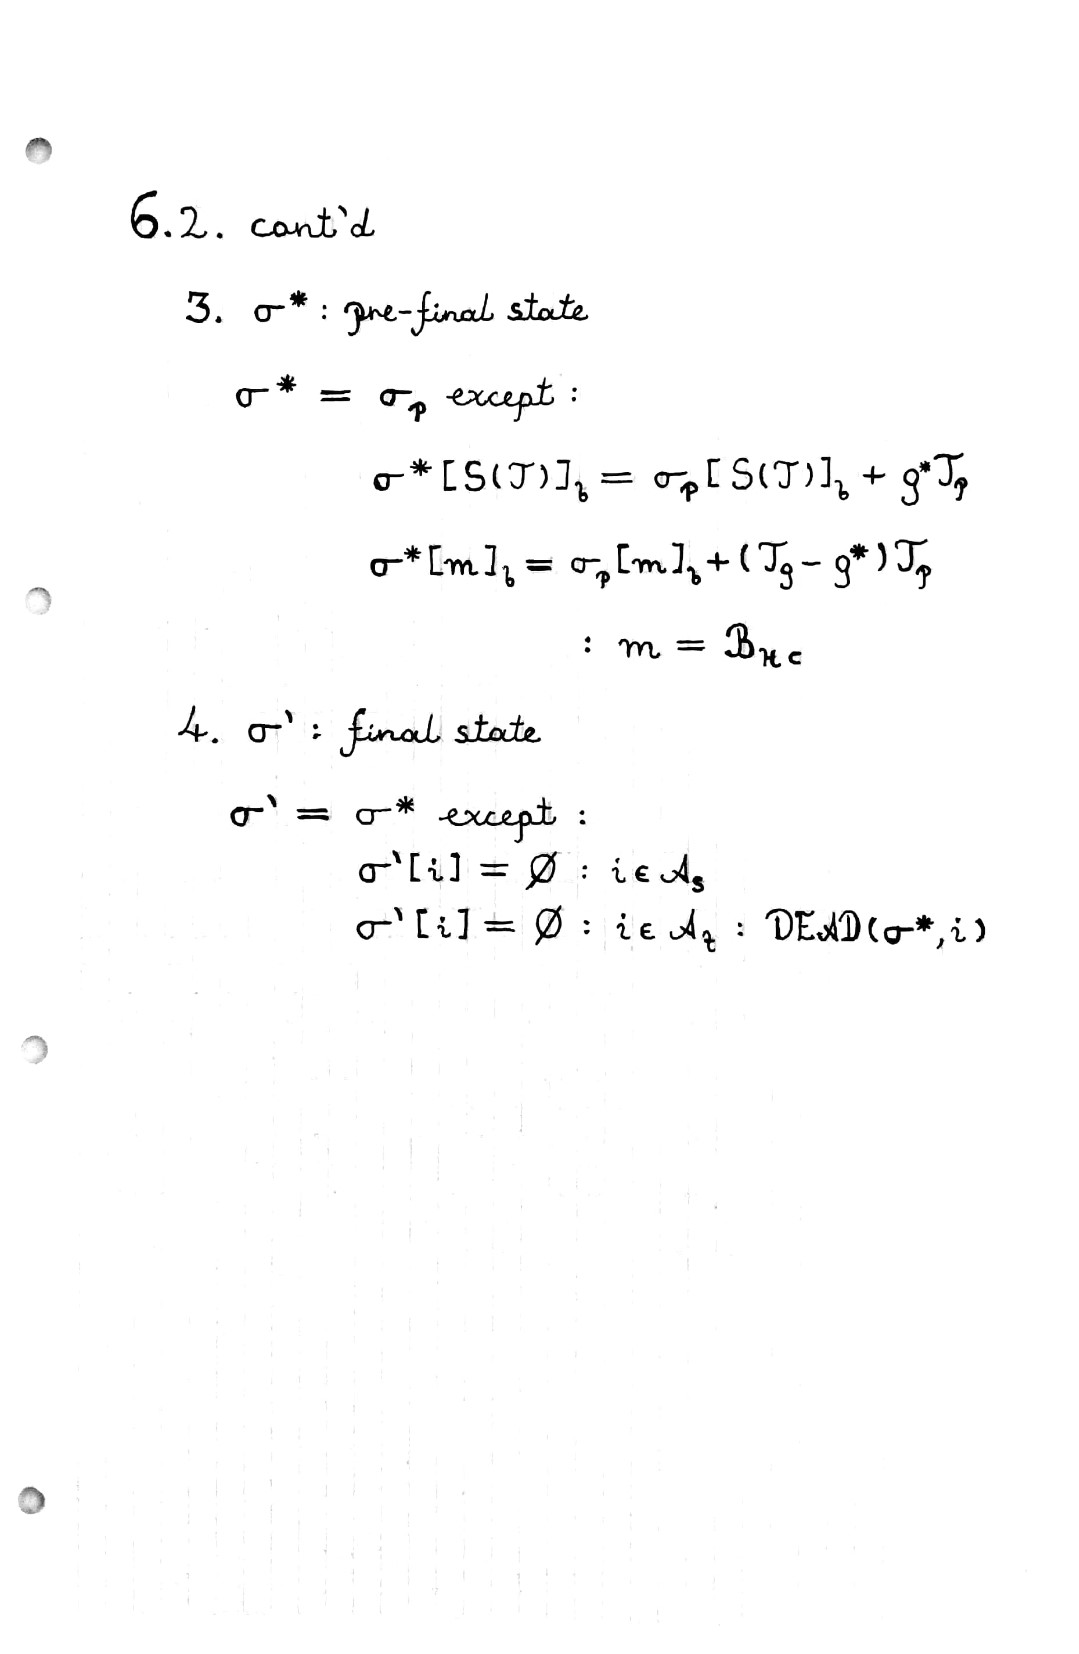 6.2. cont'd
3. σ* : pre-final state
σ* = σₚ except :
σ*[S(T)]_b = σₚ[S(T)]_b + g*Tₚ
σ*[m]_b = σₚ[m]_b + (T_g − g*)Tₚ
: m = B_Hc
4. σ‵ : final state
σ‵ = σ* except :
σ‵[i] = Ø : i ∈ Aₛ
σ‵[i] = Ø : i ∈ Aₜ : DEAD(σ*, i)